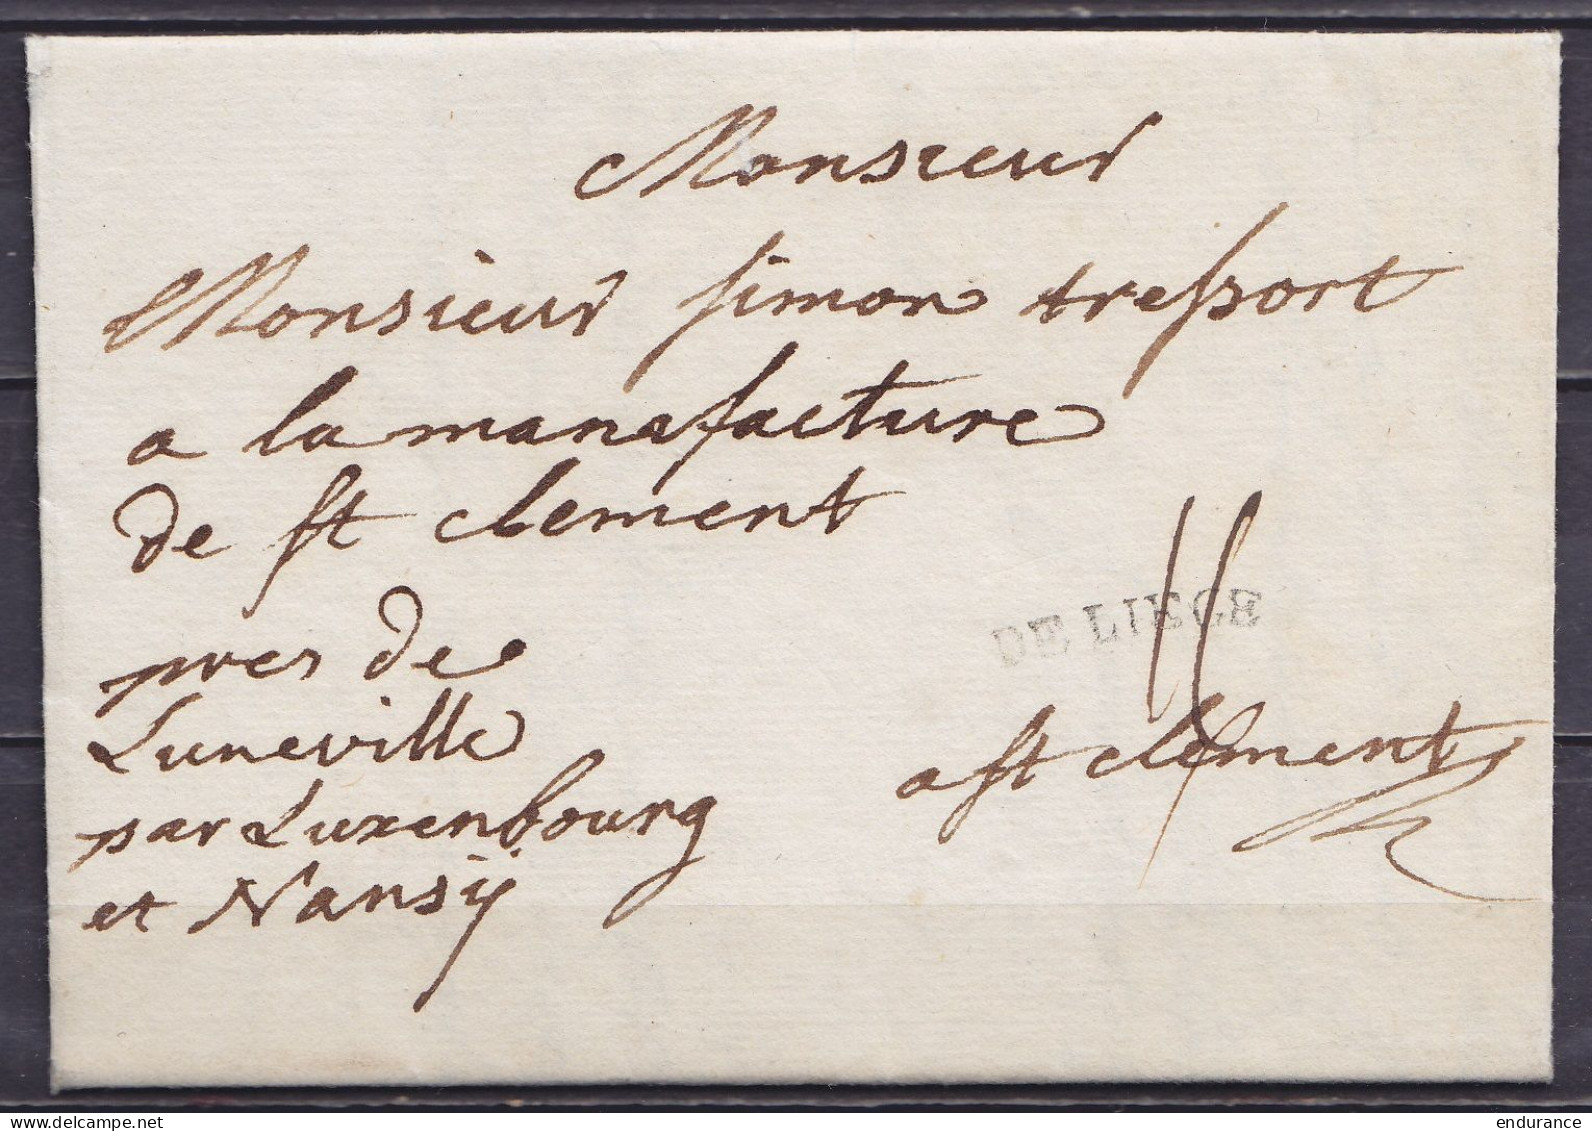 Monsieur
Monsieur simon tressort
a la manafacture
de st clement
pres de
Luneville
par Luxenbourg
et Nansÿ
11
DE LIEGE
a st clement
endurance